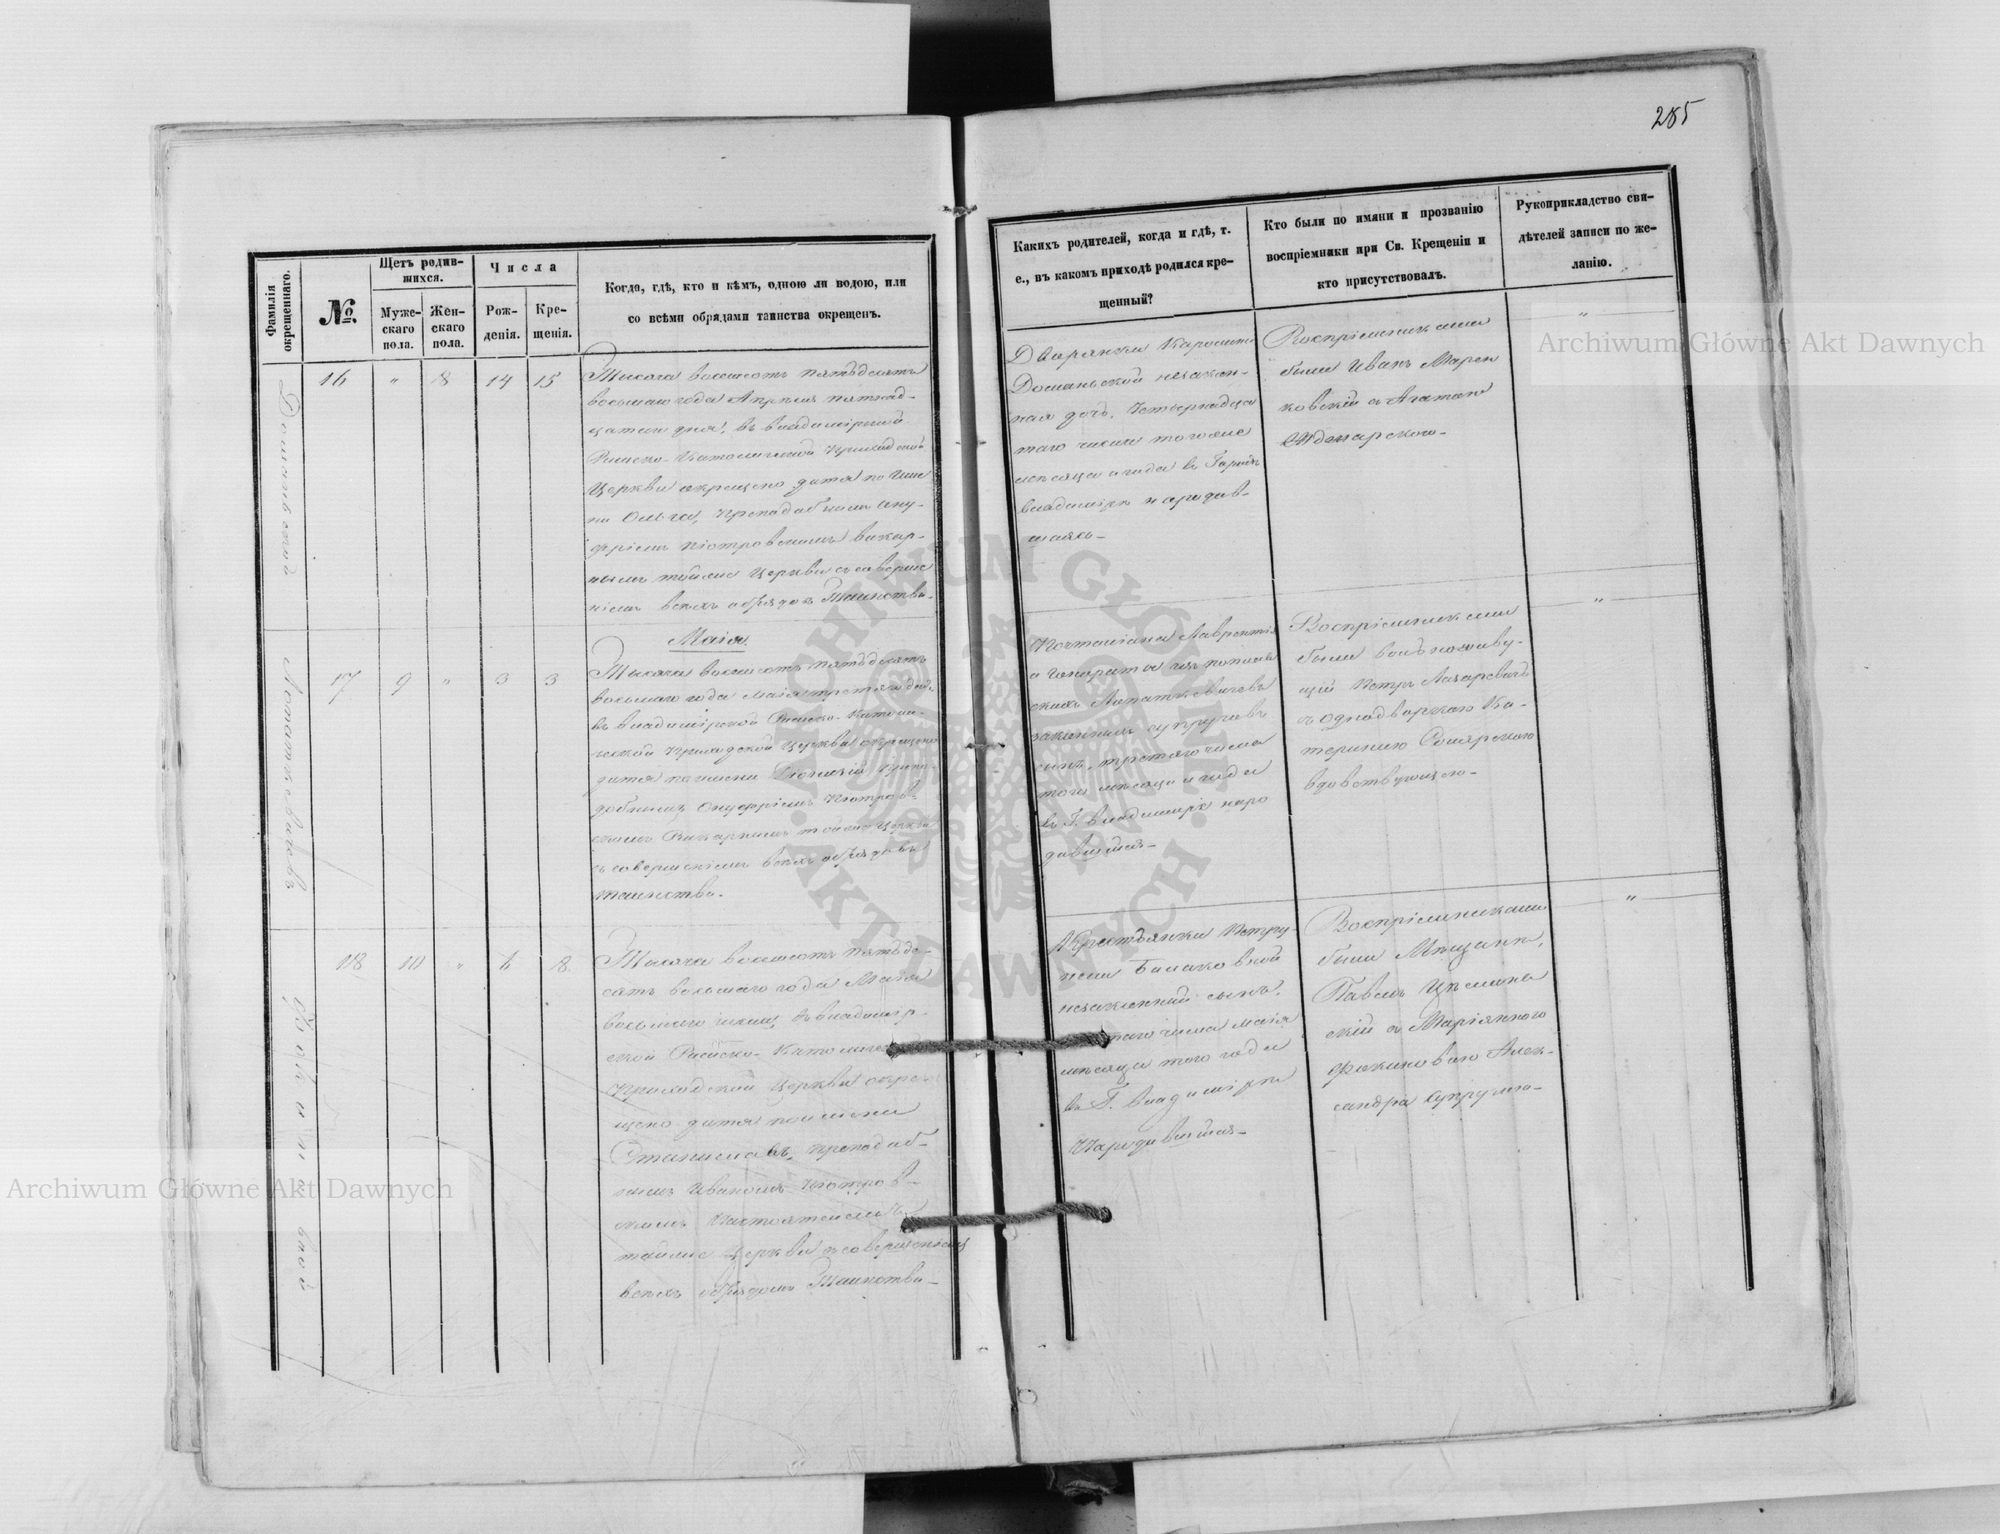 285
Фамилія
окрещеннаго.
№.
Щетъ родив-
шихся.
Муже-
скаго
пола.
Жен-
скаго
пола.
Числа
Рож-
денія.
Кре-
щенія.
Когда, гдѣ, кто и кѣмъ, одною ли водою, или
со всѣми обрядами таинства окрещенъ.
Каких родителей, когда и гдѣ, т.
е., въ какомъ приходѣ родился кре-
щенный?
Кто были по имяни и прозванію
воспріемники при Св. Крещеніи и
кто присутствовалъ.
Рукоприкладство сви-
дѣтелей записи по же-
ланію.
16 " 8 14 15
Тысяча восемсотъ пятьдесятъ
восьмаго года Апрѣля пятнад-
цатаго дня, въ Владимірской
Римско-Католической Приходской
Церкви окрещено дитя по име
ни Ольга, Преподобнымъ Ону-
фріемъ Піотровскимъ Викар-
нымъ тойже Церкви съ соверше
ніемъ всѣхъ обрядовъ Таинства.
Дворянки Каролины
Доманьской незакон-
ная дочь, Четырнадца
таго числа тогоже
мѣсяца и года въ Городѣ
Владимірѣ народив-
шаяся
Воспріемниками
были Иванъ Марен
ковскій с Агатою
"
Маія
17 9 " 3 3
Тысяча восемсотъ пятьдесятъ
восьмаго года Маія третяго дня,
въ Владимірской Римско-Католи-
ческой Приходской Церкви окрещено
дитя по имени Діонисій Препо-
добнымъ Онуфріемъ Піотров-
скимъ Викарнымъ тойже Церкви
съ совершеніемъ всѣхъ обрядовъ
таинства.
Почталіона Лаврентія
и Гонораты
Лопаткевичевъ
законныхъ супруговъ
сынъ, третяго числа
того мѣсяца и года
въ Г. Владимірѣ наро
дившійся
Воспріемниками
были
Петръ Лазаревичъ
съ Однодворкою Ка-
териною
вдовствующею
"
18 10 " 6 8
Тысяча восемсотъ пятьде-
сятъ восьмаго года Маія
восьмаго числа, въ Владимір-
ской Римско-Католической
Приходской Церкви окре-
щено дитя по имени
Станиславъ, Преподоб-
нымъ Иваномъ Піотров-
скимъ Настоятелемъ
тойже Церкви съ совершеніемъ
всѣхъ обрядовъ Таинства
Крестьянки Петру
нели
незаконный сынъ,
числа маія
мѣсяца того года
въ Г. Владимірѣ
Народившійся
Воспріемниками
были Мѣщане,
Павелъ
скій с Маріянною
Алек-
сандра супругою
"
Archiwum Główne Akt Dawnych
Archiwum Główne Akt Dawnych
ARCHIWUM GŁÓWNE
AKT DAWNYCH